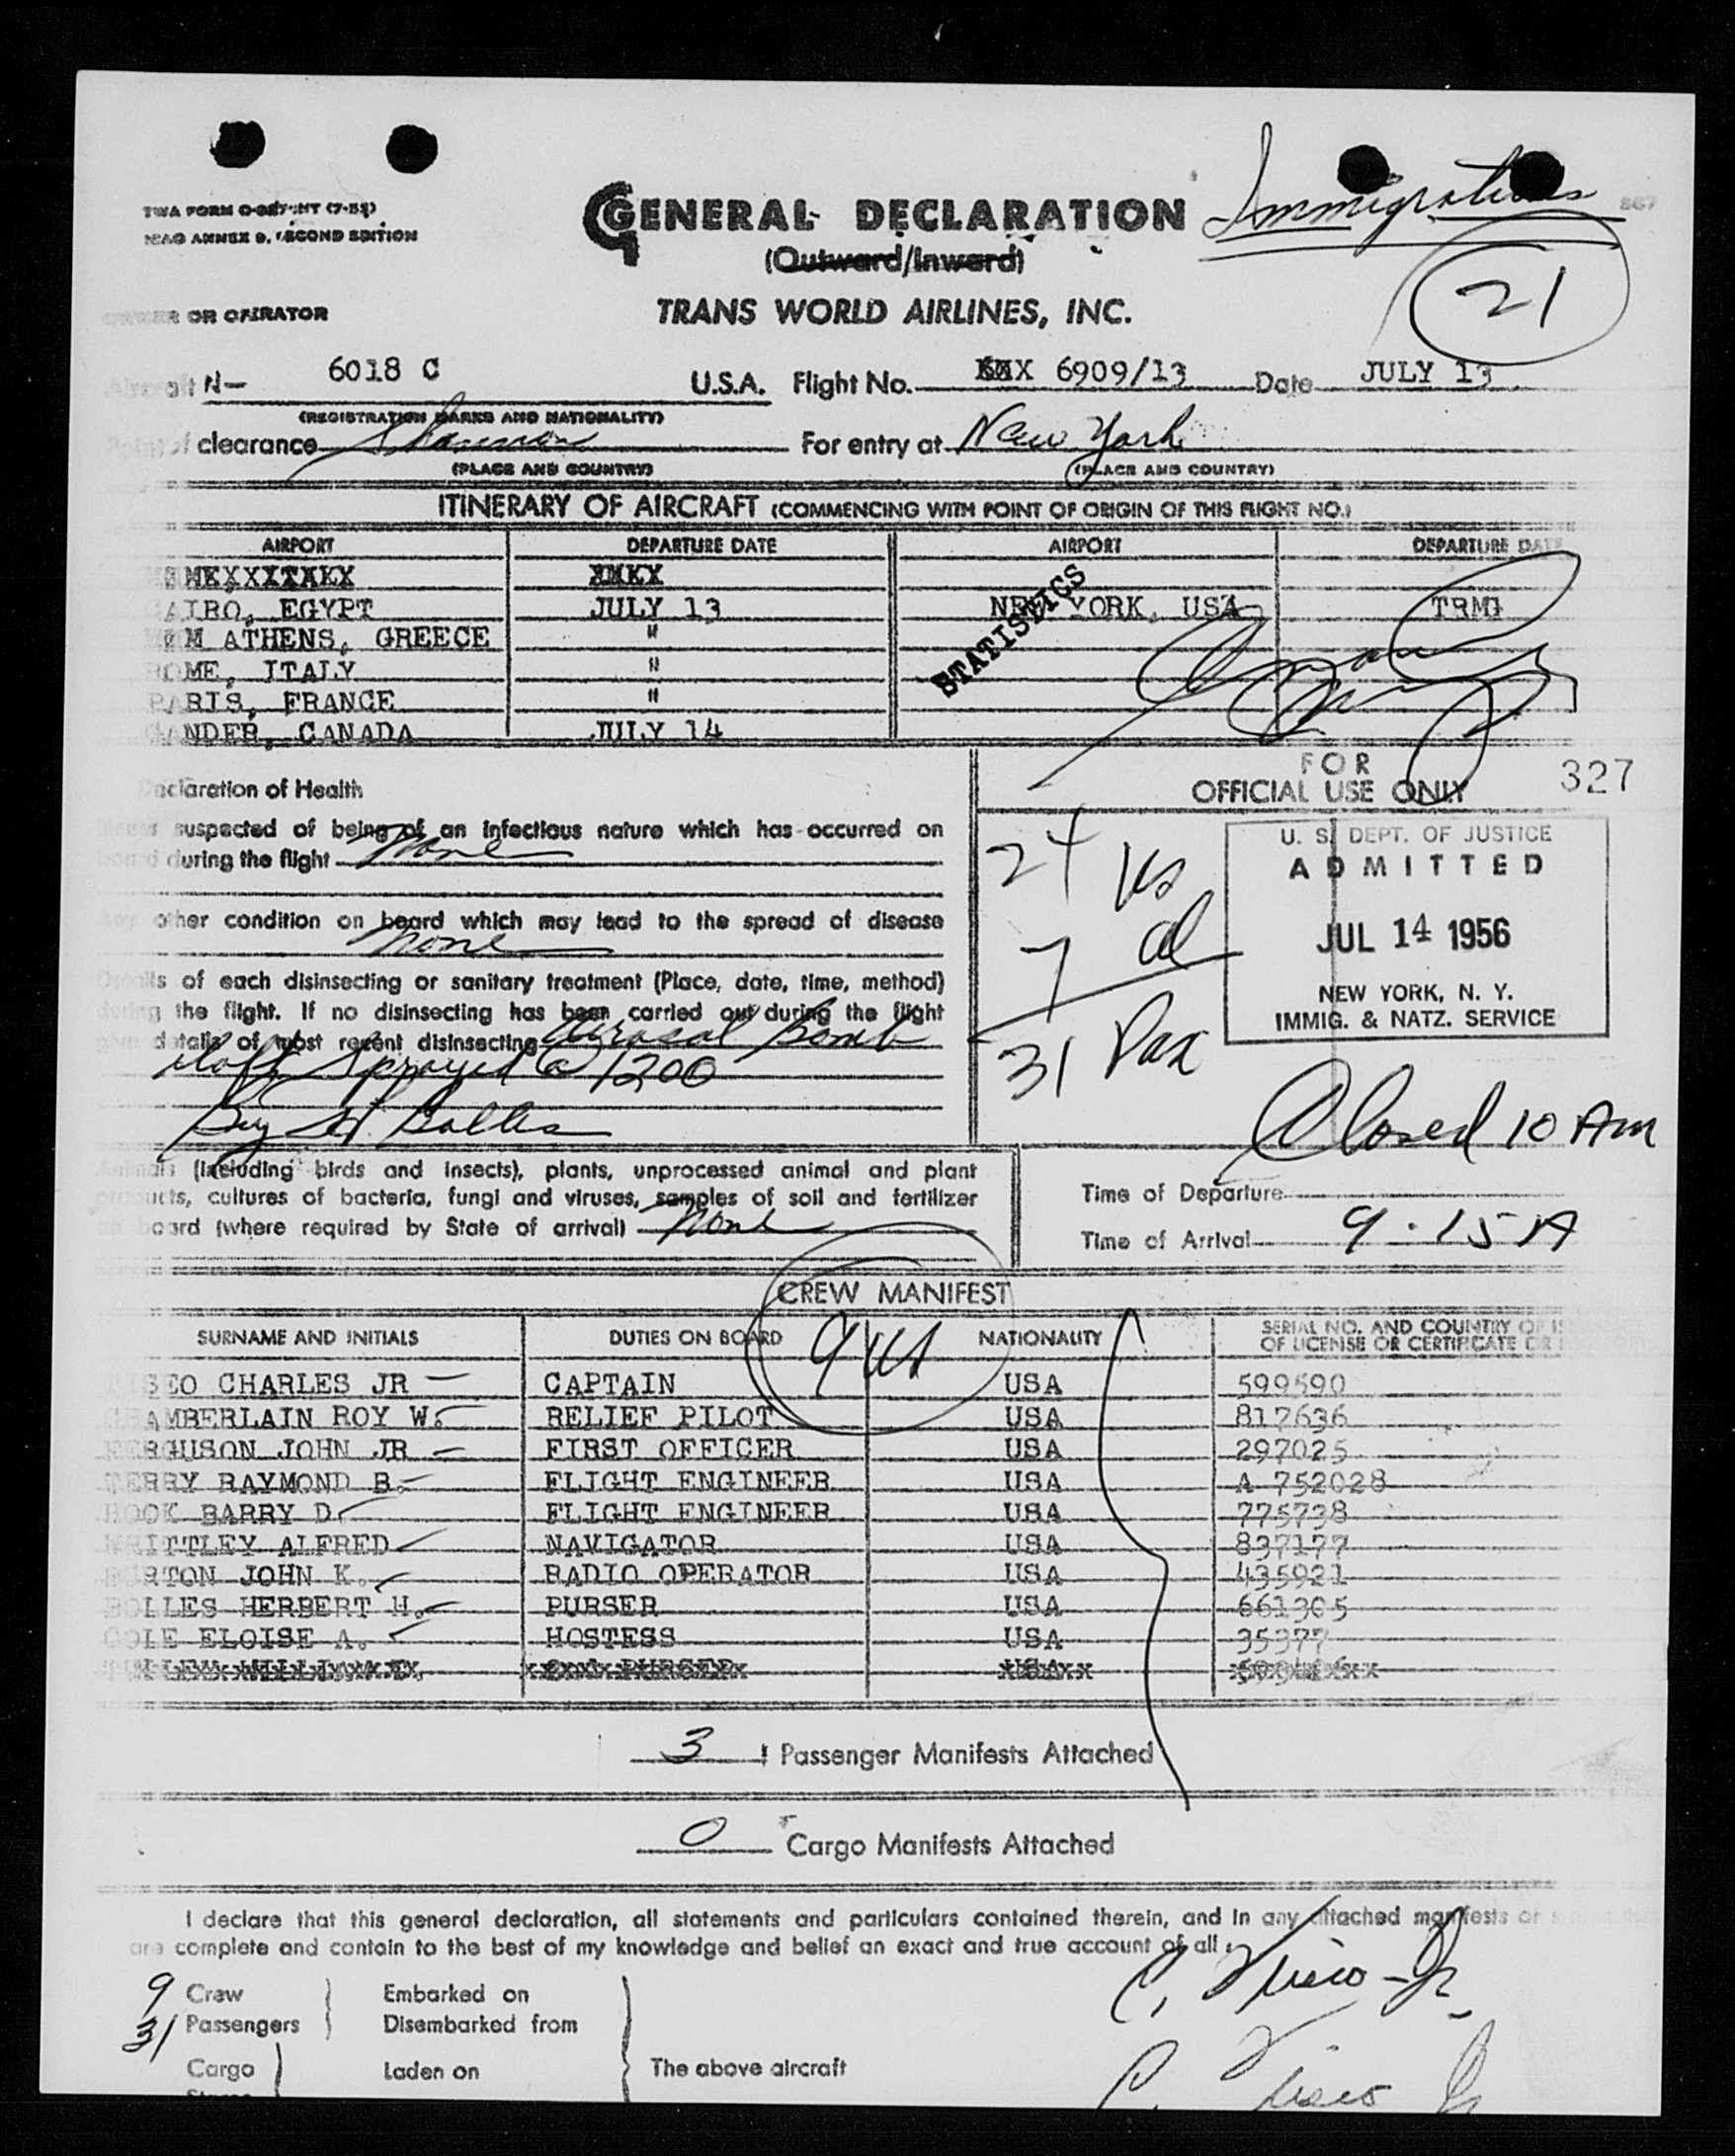 GENERAL DECLARATION
Immigration
(Outward/Inward)
21
OR OPERATOR
TRANS WORLD AIRLINES, INC.
N- 6018 C U.S.A. Flight No. 6909/13 Date JULY 13
(REGISTRATION MARKS AND NATIONALITY)
clearance Shannon For entry at New York
(PLACE AND COUNTRY) (PLACE AND COUNTRY)
ITINERARY OF AIRCRAFT (COMMENCING WITH POINT OF ORIGIN OF THIS FLIGHT NO.)
AIRPORT DEPARTURE DATE AIRPORT DEPARTURE DATE
CAIRO, EGYPT JULY 13 NEW YORK, USA TRMI
ATHENS, GREECE "
ROME, ITALY "
PARIS, FRANCE "
GANDER, CANADA JULY 14
STATISTICS
FOR
OFFICIAL USE ONLY
327
Declaration of Health
suspected of being of an infectious nature which has occurred on
during the flight None
other condition on board which may lead to the spread of disease
None
Details of each disinsecting or sanitary treatment (Place, date, time, method)
during the flight. If no disinsecting has been carried out during the flight
details of most recent disinsecting Aerosol Bomb
Sprayed @ 1200
By H. Bolles
24 US
7 al
31 Pax
U. S. DEPT. OF JUSTICE
ADMITTED
JUL 14 1956
NEW YORK, N. Y.
IMMIG. & NATZ. SERVICE
Closed 10 Am
Animals (including birds and insects), plants, unprocessed animal and plant
products, cultures of bacteria, fungi and viruses, samples of soil and fertilizer
board (where required by State of arrival) None
Time of Departure
Time of Arrival 9.15 A
CREW MANIFEST
9 US
SURNAME AND INITIALS DUTIES ON BOARD NATIONALITY SERIAL NO. AND COUNTRY OF
OF LICENSE OR CERTIFICATE OR
TISEO CHARLES JR CAPTAIN USA 599590
CHAMBERLAIN ROY W. RELIEF PILOT USA 817636
FERGUSON JOHN JR FIRST OFFICER USA 297025
TERRY RAYMOND B. FLIGHT ENGINEER USA A 752028
HOOK BARRY D. FLIGHT ENGINEER USA 775738
WHITTLEY ALFRED NAVIGATOR USA 837177
BURTON JOHN K. RADIO OPERATOR USA 435921
BOLLES HERBERT H. PURSER USA 661305
COLE ELOISE A. HOSTESS USA 35377
3 Passenger Manifests Attached
0 Cargo Manifests Attached
I declare that this general declaration, all statements and particulars contained therein, and in any attached manifests or
are complete and contain to the best of my knowledge and belief an exact and true account of all
9 Crew Embarked on
31 Passengers Disembarked from
Cargo Laden on The above aircraft
C. Tiseo Jr.
C. Tiseo Jr